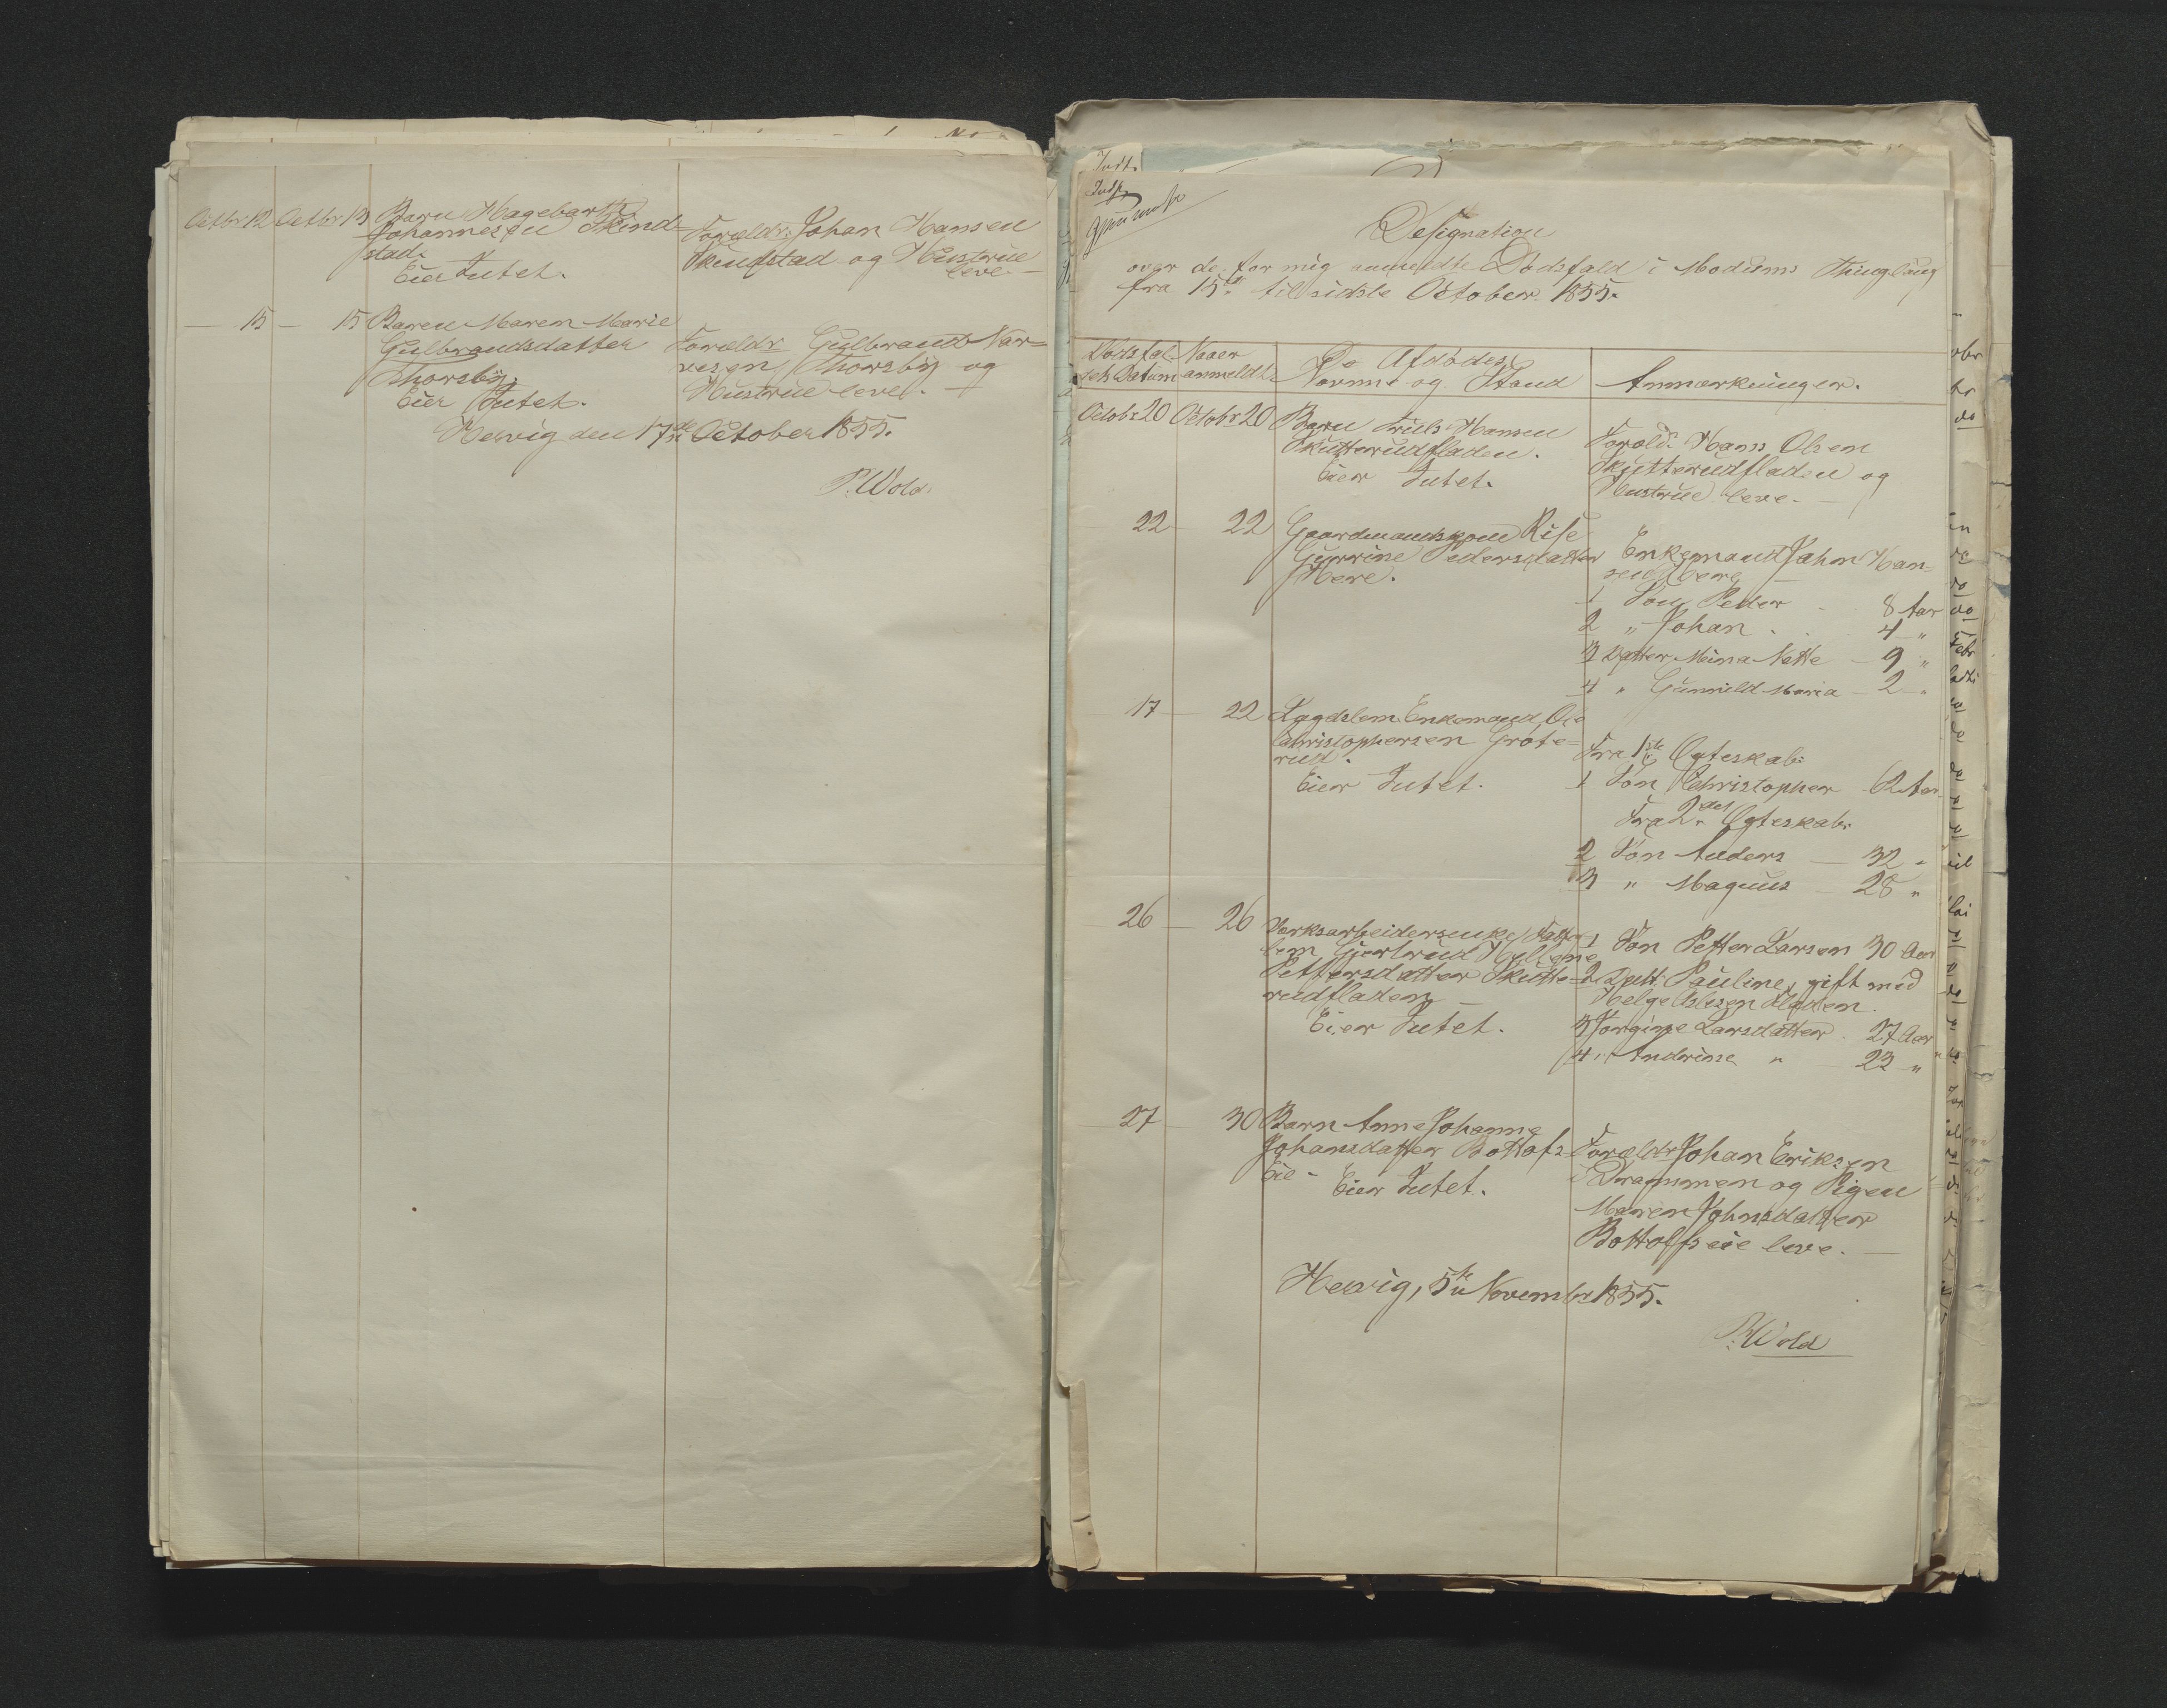 Octbr 12 Octbr 13 Barn Hagebarth
Johannesen Skind-
stad.
Eier Intet.
Forældr: Johan Hansen
Skindstad og Hustrue
leve -
— 15 — 15 Barn Maren Marie
Gulbrandsdatter
Thorsby.
Eier Intet.
Forældr Gulbrand Nar=
vesen Thorsby og
Hustrue leve. —
Hervig den 17de October 1855.
P. Wold.
Indt.
Indf.
Designation
over de for mig anmeldte Dødsfald i Modums Thinglaug
fra 15de til sidste October 1855.
Dødsfal-
dets Datum
Naaer
anmeldt
De Afdødes
Navne og Stand
Anmærkninger.
Octobr 20 Octobr 20 Barn Truls Hansen
Skutterudfladen.
Eier Intet.
Foræld: Hans Olsen
Skutterudfladen og
Hustrue leve. —
22 — 22 Gaardmandskone Rise
Gurrine Pedersdatter
Bere.
Enkemand Jahn Han-
sen Bere
1 Søn Peder 8 Aar
2 " Johan 4 "
3 Datter Mina Nette — 9 "
4 " Gunnild Maria — 2 "
17 — 22 Lægdslem Enkemand Ole
Christophersen Grøte=
rud.
Eier Intet.
Fra 1ste Ægteskab:
1 Søn Christopher 62 Aar
Fra 2det Ægteskab:
2 Søn Anders — 32 "
3 " Magnus — 28 "
26 — 26 Værksarbeidersenke,
lem Giertrud Hellene
Pettersdatter Skutte-
rudfladen
Eier Intet.
1 Søn Petter Larsen 30 Aar
2 Datt: Pauline, gift med
Helge Aslesen Fladen.
3 Jorgine Larsdatter 27 Aar
4 " Andrine " 23 "
27 — 30 Barn Anne Johanne
Johansdatter Bottofs-
Eie -
Eier Intet.
Forældr Johan Eriksen
i Drammen og Pigen
Maren Johnsdatter
Bottolfseie leve. —
Hervig, 5te November 1855.
P. Wold